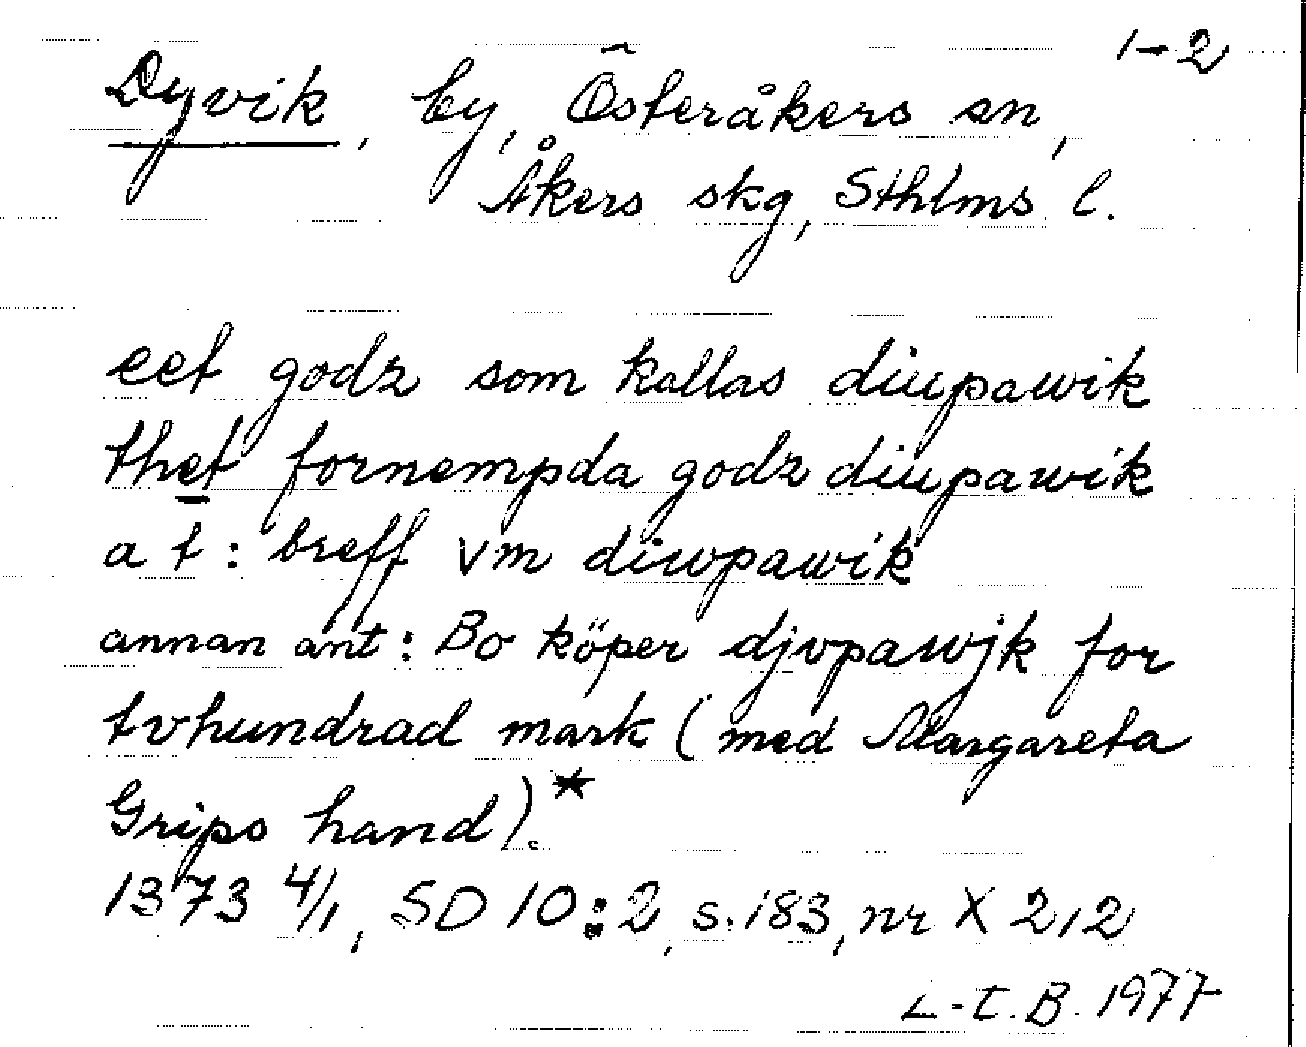 1-2
Dyvik, by, Österåkers sn,
Åkers skg, Sthlms l.
eet godz som kallas diupawik
thet fornempda godz diupawik
a t: breff vm diwpawik
annan ant: Bo köper djvpawjk for
tvhundrad mark (med Margareta
Grips hand).*
1373 4/1, SD 10:2, s. 183, nr X 212
L-E. B. 1977